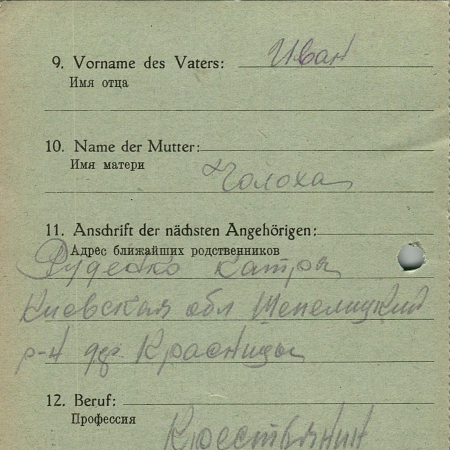 9. Vorname des Vaters: Иван
Имя отца
10. Name der Mutter:
Имя матери Чолоха
11. Anschrift der nächsten Angehörigen:
Адрес ближайших родственников
Катря
Киевская обл Шепелицкий
р-н Красница
12. Beruf:
Профессия Крестьянин